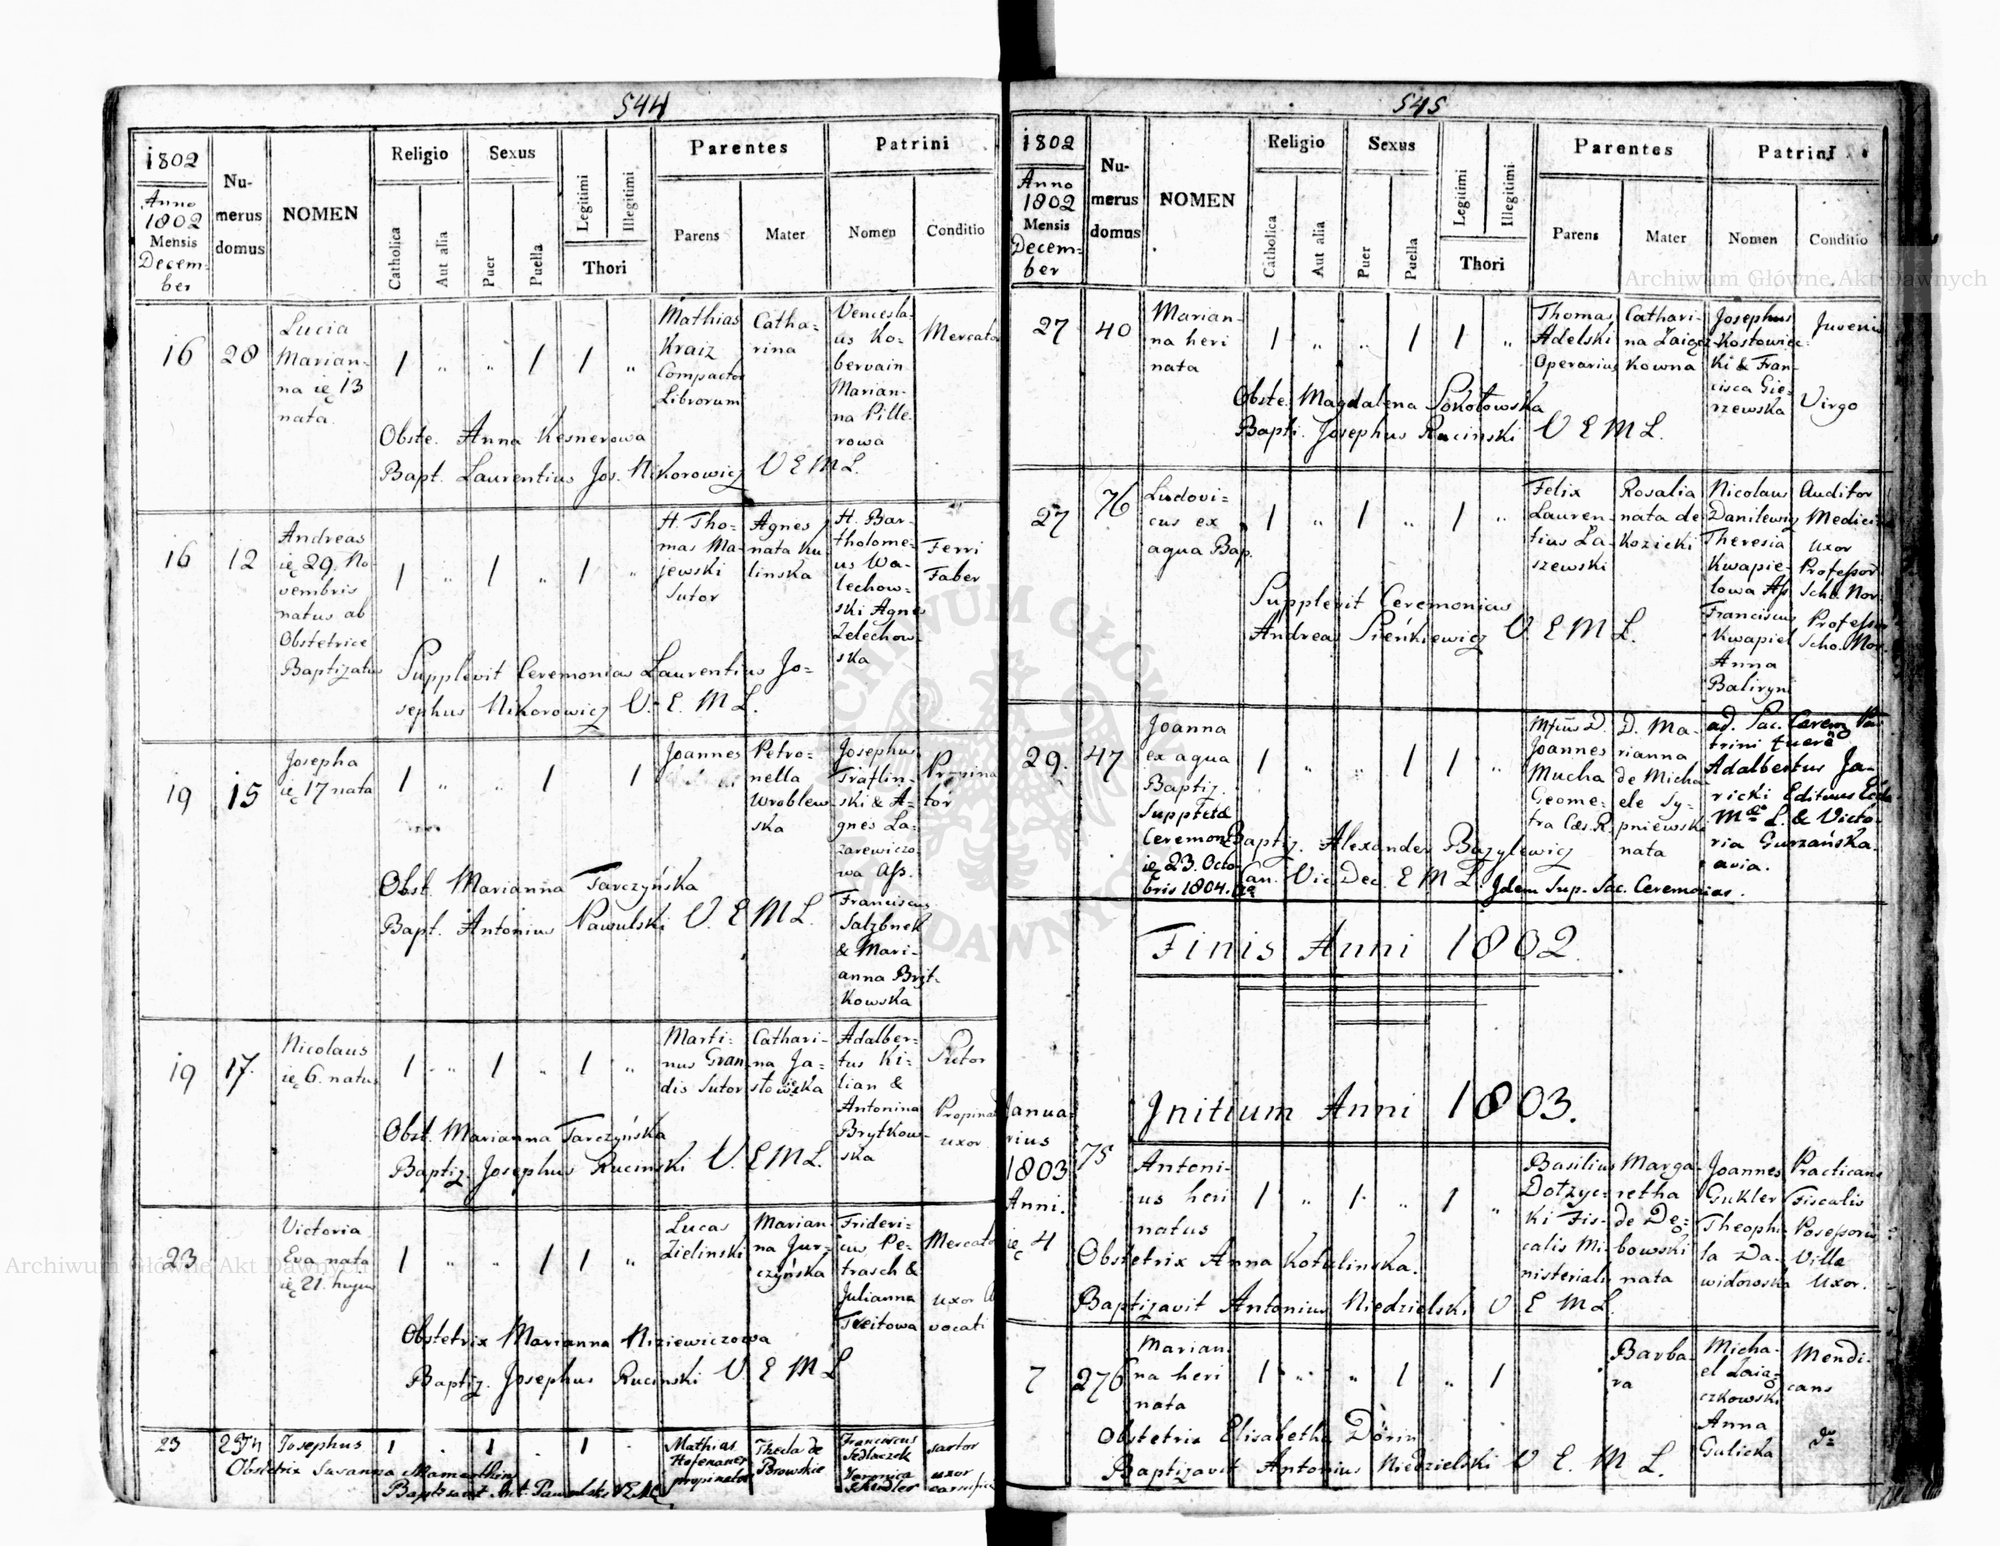 544
1802
Anno
1802
Mensis
Decem=
ber
Nu-
merus
domus
NOMEN
Religio
Catholica
Aut alia
Sexus
Puer
Puella
Legitimi
Illegitimi
Thori
Parentes
Parens
Mater
Patrini
Nomen
Conditio
16
28
Lucia
Marian=
na ię 13
nata
1 „ „ 1 1 „
Mathias
Kraiz
Compactor
Librorum
Catha=
rina
Vencesla=
us Ko=
bervain
Marian=
na Pille
rowa
Mercator
Obste. Anna Kesnerowa
Bapt. Laurentius Jos. Nikorowicz V E M L.
16
12
Andreas
ię 29 No
vembris
natus ab
Obstetrice
Baptizatus
1 „ 1 „ 1 „
H. Tho=
mas Ma=
jewski
Sutor
Agnes
nata Ku
linska
H. Bar=
tholome=
us Wa=
lechow=
ski Agnes
Zelechow
ska
Ferri
Faber
Supplevit Ceremonias Laurentius Jo=
sephus Nikorowicz V. E. M L.
19
15
Josepha
ię 17 nata
1 „ „ 1 1
Joannes
Petro=
nella
Wroblew
ska
Josephus
Traflin=
ski & A=
gnes La=
zarewiczo
wa Ass.
Franciscus
Salzbnek
& Mari=
anna Bryt-
kowska
Propina
tor
Obst. Marianna Tarczyńska
Bapt. Antonius Nawulski V. E M L.
19
17.
Nicolaus
ię 6. natus
1 „ 1 „ 1 „
Marti=
nus Gran
dis Sutor
Cathari=
na Ja=
stowicka
Adalber=
tus Ki=
lian &
Antonina
Brytkow-
ska
Sutor
Propinat
uxor
Obst. Marianna Tarczyńska
Baptiz. Josephus Rucinski V. E M L.
23
Victoria
Eva nata
ię 21. hujus
1 „ „ 1 1 „
Lucas
Zielinski
Marian
na Jur=
czyńska
Frideri=
cus Pe=
trasch &
Julianna
Treitowa
Mercator
uxor A
vocati
Obstetrix Marianna Niziewiczowa
Baptiz. Josephus Rucinski V E M L
23
Josephus
1 . 1 . 1 .
Mathias
Hofenauer
propinator
Thecla de
Browskie
Franciscus
Sedlaczek
Veronica
Schedler
sartor
uxor
Obstetrix Susanna
Baptizavit Ant. Pawulski VEML
545
1802
Anno
1802
Mensis
Decem=
ber
Nu-
merus
domus
NOMEN
Religio
Catholica
Aut alia
Sexus
Puer
Puella
Legitimi
Illegitimi
Thori
Parentes
Parens
Mater
Patrini
Nomen
Conditio
27
40
Marian-
na heri
nata
1 „ „ 1 1 „
Thomas
Adelski
Operarius
Cathari-
na Zaiącz
kowna
Josephus
Kostowiec=
ki & Fran=
cisca Gie=
rzewska
Juvenis
Virgo
Obste. Magdalena Sokołowska
Bapti. Josephus Rucinski V E M L.
27
76
Ludovi=
cus ex
aqua Bap.
1 „ 1 „ 1 „
Felix
Lauren-
tius La-
szewski
Rosalia
nata de
Kozicki
Nicolaus
Danilewicz
Theresia
Kwapie-
lowa Ass
Franciscus
Kwapiel
Anna
Baliryni
Auditor
Medicinæ
uxor
Professor
Scho. Nor.
Professor
Scho. Nor.
Supplevit Ceremonias
Andreas Sieńkiewicz V. E M L.
29.
47
Joanna
ex aqua
Baptiz.
Suppleta
Ceremonia
ię 23. Octo-
bris 1804.
1 „ „ 1 1 „
D.
Joannes
Mucha
Geome=
tra Cæs. R.
D. Ma-
rianna
de Micha
ele Sy-
pniewski
nata
ad. Sac. Cerem Pa-
trini fuerē
Adalbertus Ja-
ricki Edituus Eccle
L. & Victo-
ria Gurzańska
avia.
Baptiz. Alexander Bazylewicz
Can. Vic Dec. E M L. Idem Sup. Sac. Ceremonias.
Finis Anni 1802.
Initium Anni 1803.
Janua-
rius
1803
Anni.
ię 4
75
Antoni-
us heri
natus
1 „ 1 „ 1 „
Basilius
Dołzyc-
ki Fis-
calis Mi-
nisterialis
Marga-
retha
de Dę=
bowski
nata
Joannes
Gukler
Theophi-
la Da-
widowska
Practicans
Fiscalis
Posesoris
Villa
uxor.
Obstetrix Anna Kotulinska.
Baptizavit Antonius Niedzielski V E M L.
7
276
Marian
na heri
nata
1 „ „ 1 „ 1
Barba-
ra
Micha-
el Zaią-
czkowski
Anna
Gulicka
Mendi-
cans
do
Obstetrix Elisabetha Dörin
Baptizavit Antonius Niedzielski V E. M L.
Archiwum Główne Akt Dawnych
Archiwum Główne Akt Dawnych
ARCHIWUM GŁÓWNE AKT DAWNYCH